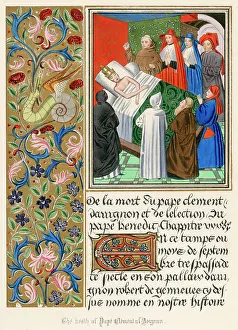 De la mort du pape clement
davignon et de lelection du
pape benedic Chapitre
En ce temps ou
mois de septem
bre trespassa de
ce siecle en son pallais dau
gnon robert de genneue cy des
sus nomme en nostre histoire
The death of Pope Clement of Avignon